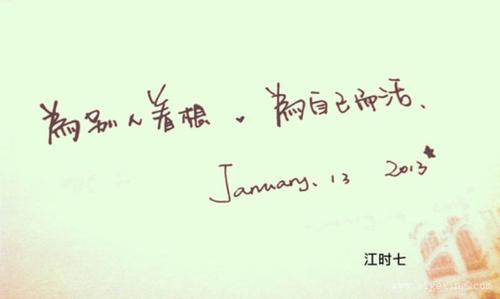 為别人着想。為自己而活、
January. 13 2013
江时七